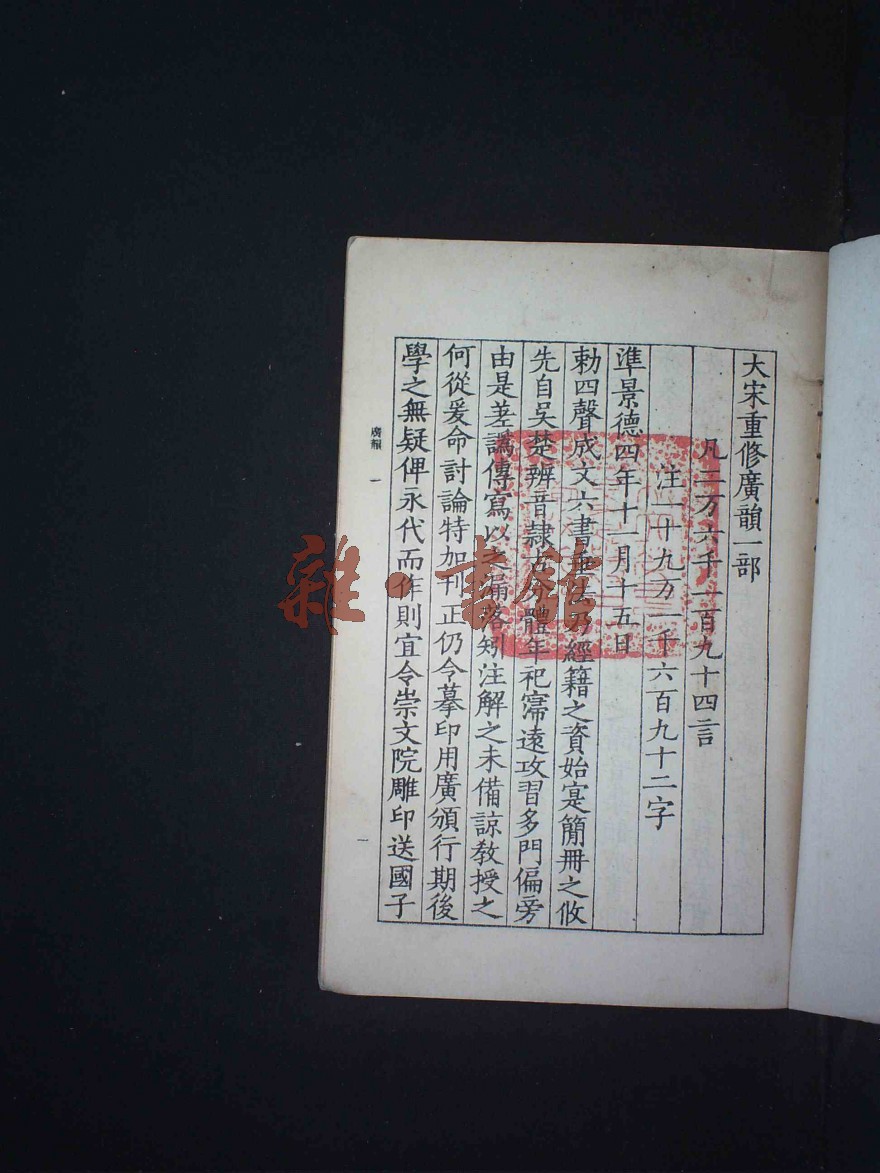 大宋重修廣韻一部
凡二万六千一百九十四言
注一十九万一千六百九十二字
準景德四年十一月十五日
勅四聲成文六書垂法乃經籍之資始寔簡冊之攸
先自吳楚辨音隷古分體年祀寖遠攻習多門偏旁
由是差譌傳寫以之漏落矧注解之未備諒敎授之
何從爰命討論特加刊正仍令摹印用廣頒行期後
學之無疑俾永代而作則宜令崇文院雕印送國子
廣韻 一
一
雜·書館